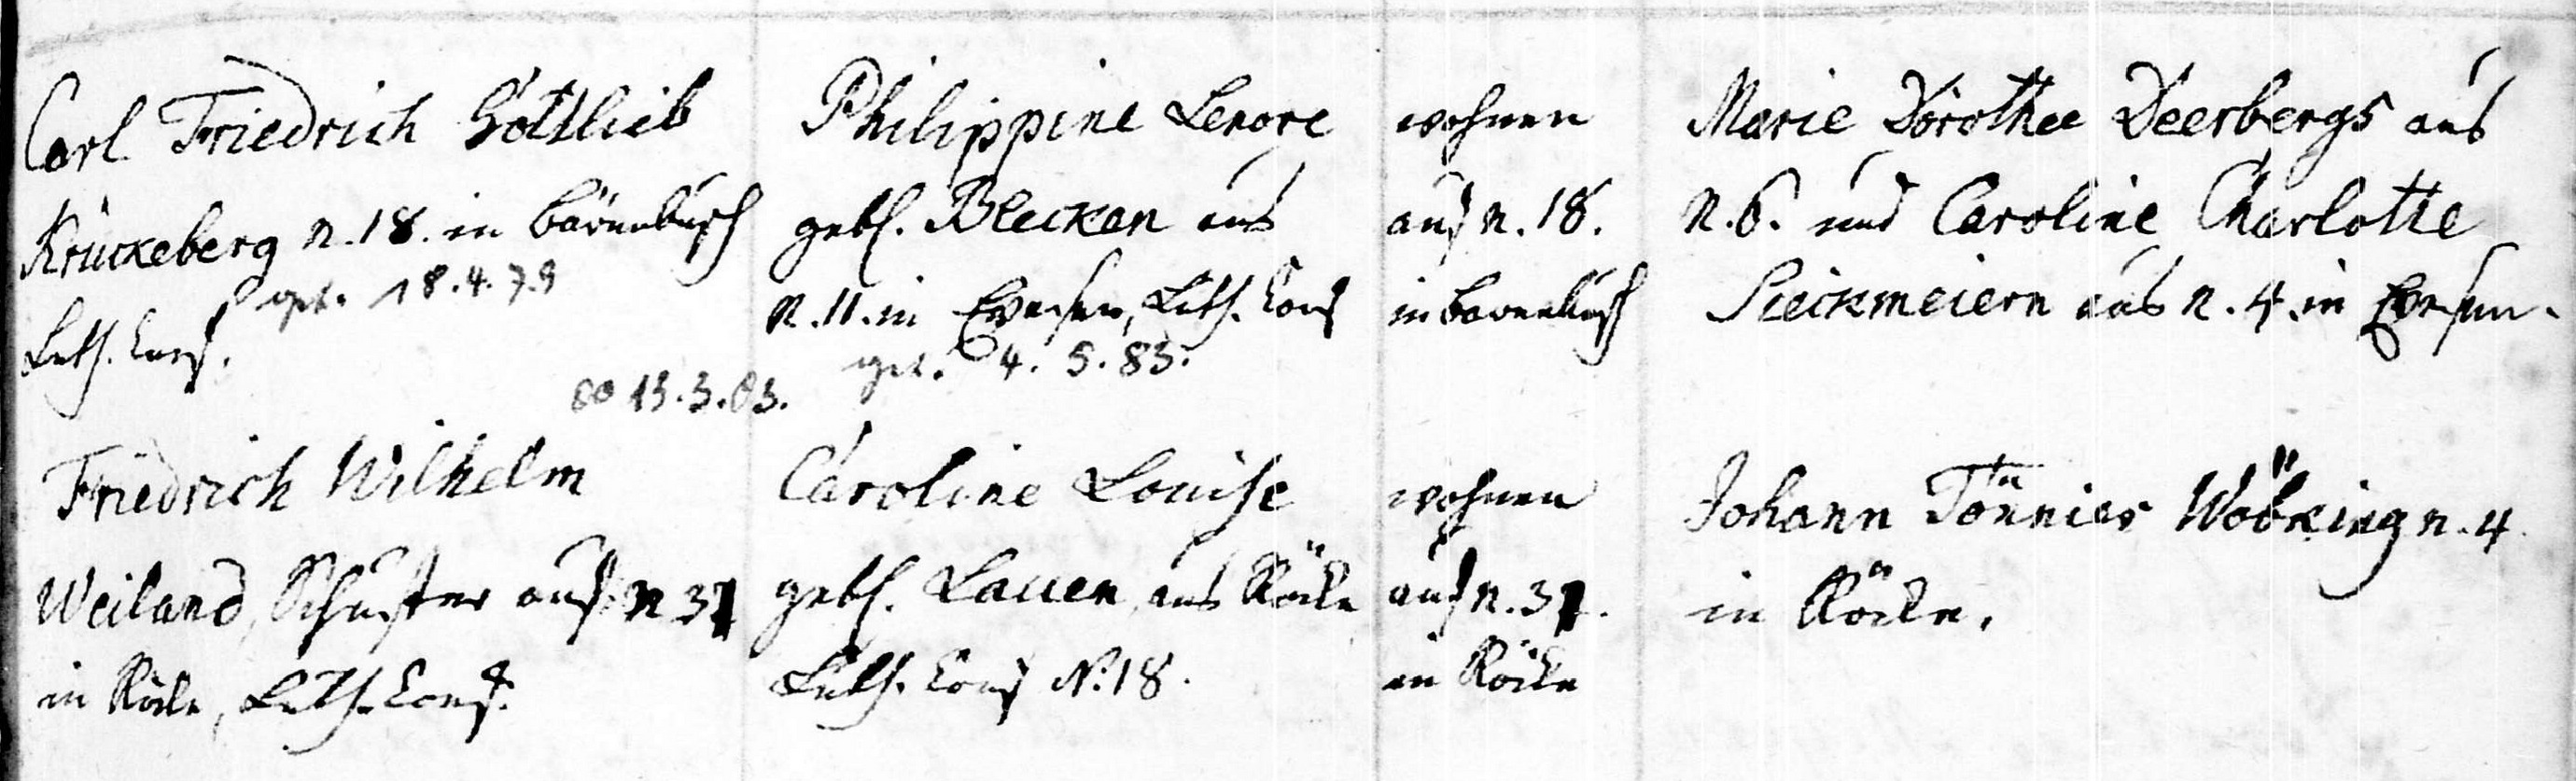 Carl Friedrich Gottlieb
Krückeberg n. 18. in Bävenbusch
geb. 18.4.79
Luth. Conf.
∞ 13.3.03.
Philippine Lenore
gebh. Blecken aus
n. 11. in Evesen, Luth. Conf
geb. 4. 5. 83.
wohnen
auf n. 18.
in Bavenbusch
Marie Dorothee Deerbergs aus
n. 6. und Caroline Charlotte
Sieckmeiern aus n. 4. in Evesen.
Friedrich Wilhelm
Weiland, Schuster auf n 31
in Röcke, Luth. Conf.
Caroline Louise
gebh. Lauen, aus Röcke
Luth. Conf N. 18.
wohnen
auf n. 31.
in Röcke
Johann Tönnies Wöbking n. 4
in Röcke.